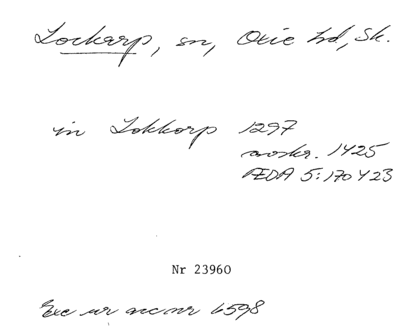 Lockarp, sn, Oxie hd, Sk.
in Lokkorp 1297
avskr. 1425
ÆDA 5:170 423
Nr 23960
Exc ur acc nr 6598